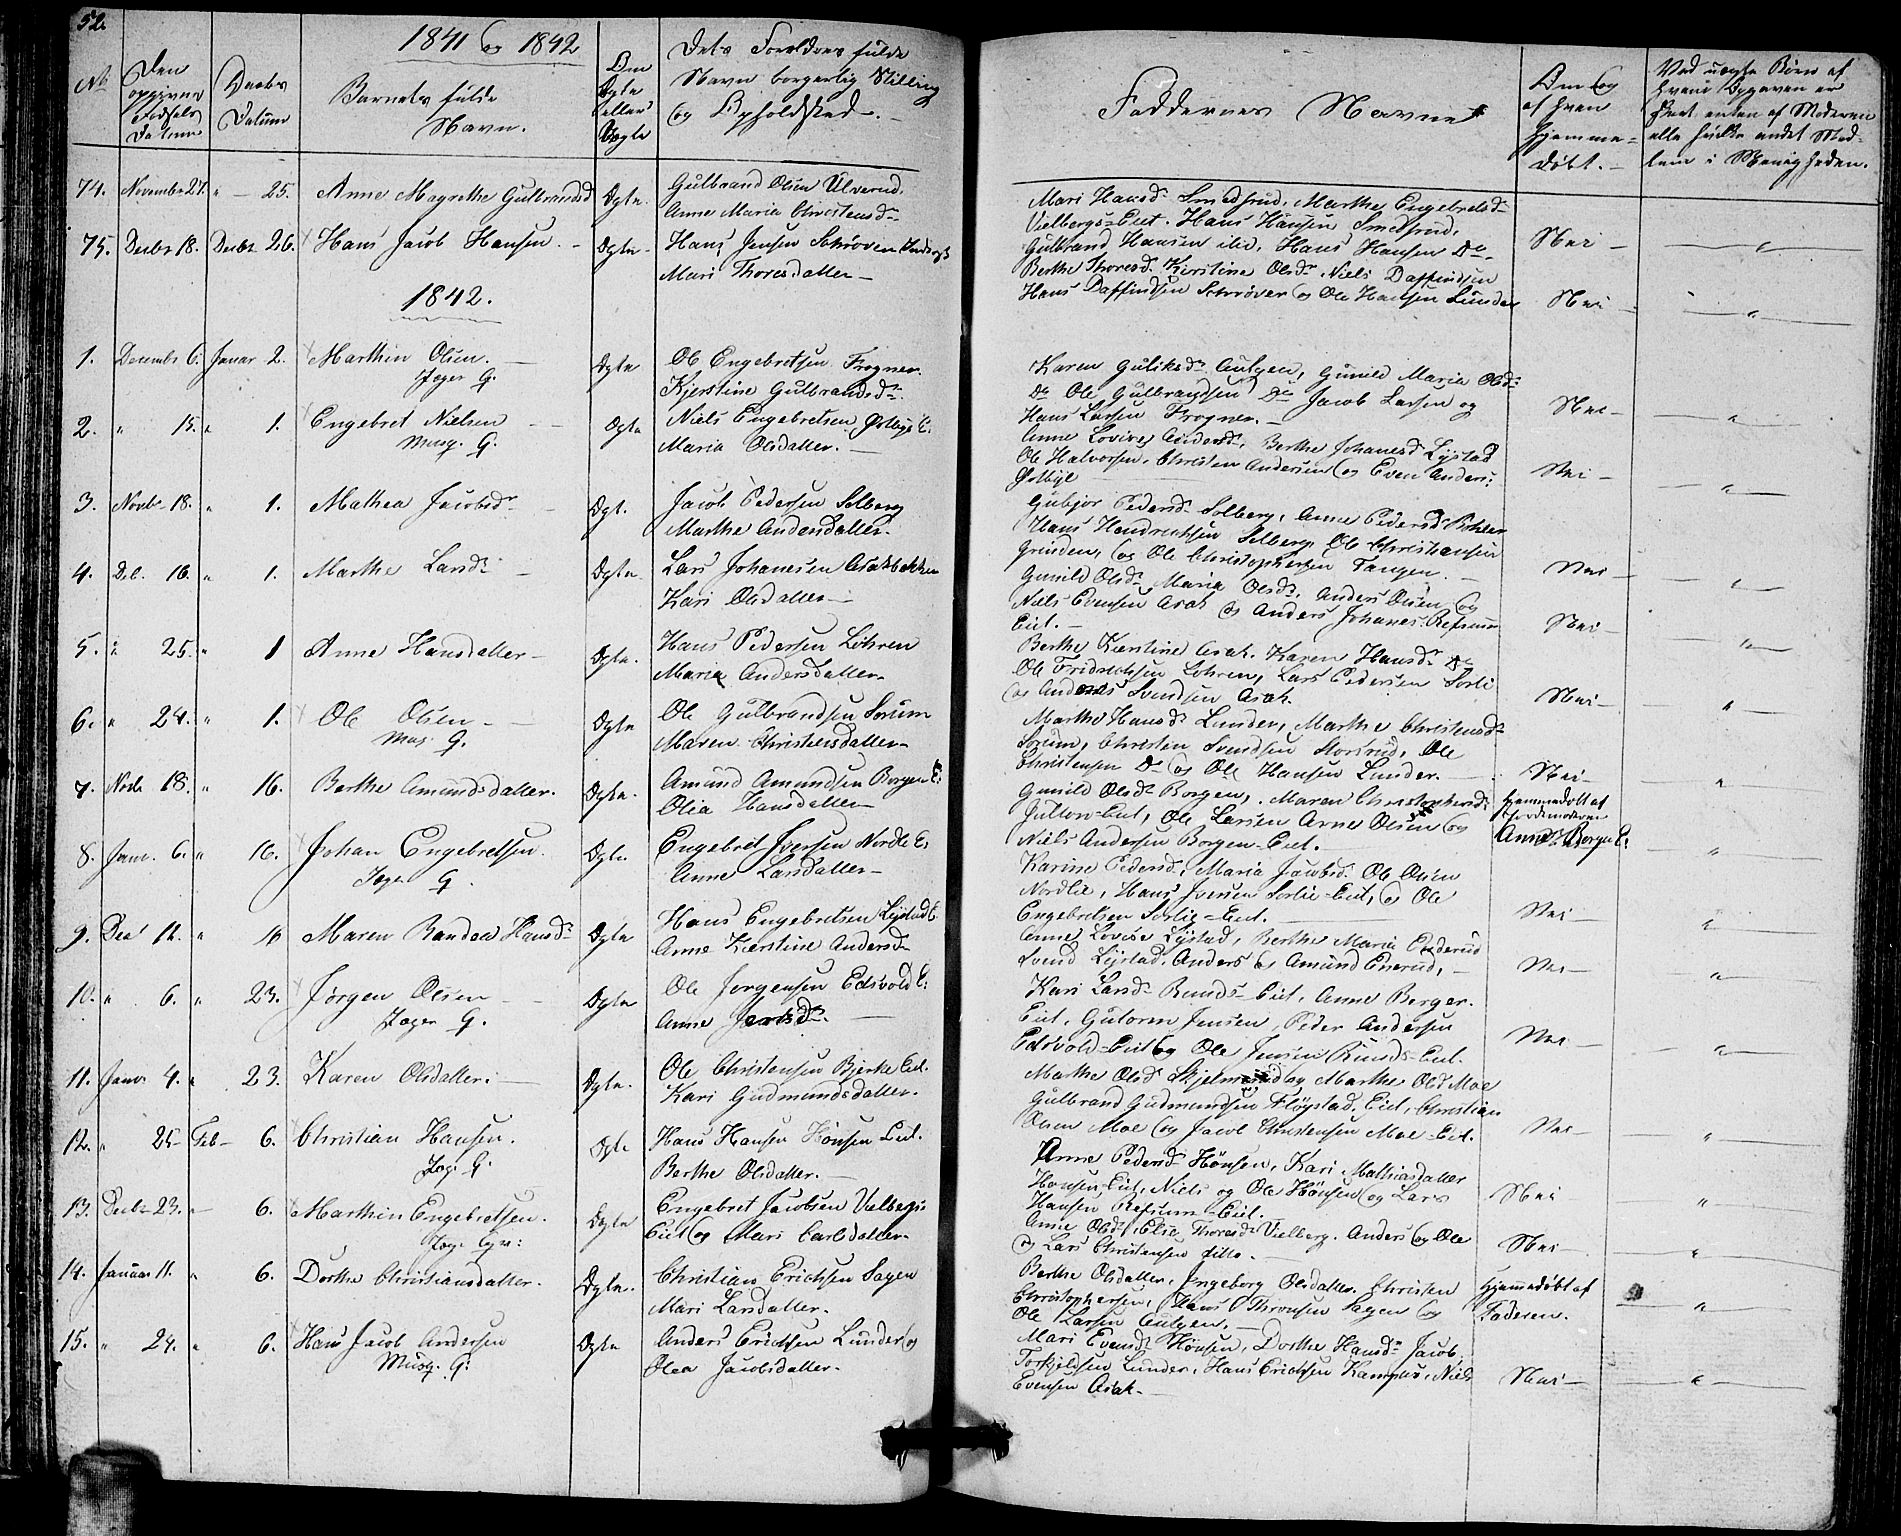 52.
1841 og 1842
No
Den opgivne Fødsels Datum
Daabs Datum
Barnets fulde Navn.
Om Ægte eller Uægte
Dets Forældres fulde Navn borgerlig Stilling og Opholdsted.
Faddernes Navne
Om og af hvem hjemme-døbt.
Ved uægte Børn af hvem Opgaven er skeet enten af Moderen eller hvilke andet Medlem i Menigheden.
74. November 27. " — 25. Anne Magrethe Gulbrandsd Ægte. Gulbrand Olsen Ulverud. Anne Maria Christensdr
Mari Hansdr Smedsrud, Marthe Engebretsdr
Vielbergs=Eiet. Hans Hansen Smedsrud,
Gulbrand Hansen ibid, Hans Hansen Do. Nei — "
75. Decbr 18. Decbr 26. Hans Jacob Hansen. Ægte Hans Jensen Schrøver Mari Thoresdatter —
Berthe Thoresd. Kirstine Olsdr, Niels Daffindsen
Hans Daffindsen Schrøver og Ole Hansen Lunder Nei — "
1842.
1. Decembr 6. Januar 2. Marthin Olsen. Jager G. Ægte Ole Engebretsen Frogner. Kjerstine Gulbrandsdr.
Karen Guliksdr Aulgen, Gunild Maria Olsdr
Do Ole Gulbrandsen Do Jacob Larsen og
Hans Larsen Frogner. — Nei — "
2. " 15. " 1. Engebret Nielsen Musq. G. Ægte Niels Engebretsen Østbye E. Maria Olsdatter. —
Anne Lovise Andersdr, Berthe Johanesd Lystad
Ole Halvorsen, Christen Andersen og Even Anders:
Østbye Nei — "
3. Novbr 18. " 1. Mathea Jacobsdr Ægt. Jacob Pedersen Solberg Marthe Andersdatter.
Gubjør Pedersdr Solberg, Anne Pedersdr
Hans Hendrichsen Solberg Ole Christiansen
Grinden, og Ole Christophersen Tangen. Nei — "
4. Dec. 16. " 1. Marthe Larsdr Ægte Lars Johanesen Asakbakken Kari Olsdatter —
Gunild Olsdr Maria Olsdr, Anders Olsen og
Niels Evensen Asak og Anders Johanes. Refsum
Eiet. — Nei — "
5. " 25. " 1 Anne Hansdatter — Ægte. Hans Pedersen Løhren Maria Andersdatter.
Berthe Kirstine Asak. Karen Hansdr Do
Ole Fridrichsen Lohren, Lars Pedersen Sorli
og Anders Svendsen Asak. Nei — "
6. " 24. " 1. Ole Olsen — Mus. G. Ægte Ole Gulbrandsen Sorum Maren Christensdatter —
Marthe Hansdr Lunder, Marthe Christensdr
Sorum, Christen Svendsen Storsrud, Ole
Christensen Do og Ole Hansen Lunder. Nei — "
7. Novbr 18. " 16. Berthe Amundsdatter. Ægte. Amund Amundsen Borgen E: Olia Hansdatter —
Gunild Olsdr Borgen, Maren Christophersdr
Jultom=Eiet, Ole Larsen Arne Olsen og
Niels Andersen Borgen=Eiet. Hjemmedøbt af Jordemoderen Anne Borgen E: "
8. Janr. 6. " 16. Johan Engebretsen. Jager G. Ægte Engebret Iversen Nordli E: Anne Larsdatter —
Karine Pedersdr, Maria Jacobsd. Ole Olsen
Nordlie, Hans Iversen Sorlie=Eiet, og Ole
Engebretsen Sorlie=Eiet. Nei — "
9. Decbr 12. " 16 Maren Randea Hansdr Ægte Hans Engebretsen Lystad E. Anne Kirstine Andersdr
Anne Lovise Lystad, Berthe Maria Enderud
Svend Lystad, Anders og Amund Enerud, — Nei — "
10. " 6. " 23. Jørgen Olsen Jager G. Ægte Ole Jorgensen Edsvold E: Anne Jensdr.
Kari Larsdr Runds=Eiet, Anne Berger.
Eiet, Gutorm Jensen, Peder Andersen
Edsvold=Eiet og Ole Jensen Runds=Eiet. Nei — "
11. Janr. 4. " 23. Karen Olsdatter: Ægte. Ole Christensen Bjerke Eiet. Kari Gudmundsdatter.
Marthe Olsdr Skjelm og Marthe Olsd Moe
Gulbrand Gudmundsen Fløgstad. Eiet, Christian
Olsen Moe og Jacob Christensen Moe=Eiet. Nei — "
12. " 25 Feb 6. Christian Hansen. Jag. G. Ægte Hans Hansen Hønsen Eiet. Berthe Olsdatter. —
Anne Pedersdr Hønsen, Kari Mathiasdatter
Honsen=Eiet, Niels og Ole Hønsen og Lars
Hansen Refsum=Eiet. Nei — "
13. Decbr 23. " 6. Marthin Engebretsen. Jag: Ggv: Ægte Engebret Jacobsen Vielbergs Eiet og Mari Carlsdatter.
Anne Olsdr, Elie Thoresdr Vielberg. Anders og Ole
og Lars Christensen ditto. — Nei — "
14. Januar 11. " 6. Dorthe Christiansdatter. Ægte. Christian Erichsen Sagen Mari Larsdatter.
Berthe Olsdatter, Ingeborg Olsdatter. Christen
Christophersen, Hans Thronsen Sagen og
Ole Larsen Aulgen. — Hjemmedøbt af Faderen. "
15. " 24. " 6. Hans Jacob Andersen Musq. G: Ægte Anders Erichsen Lunder og Olea Jacobsdatter.
Mari Evensdr Hønsen, Dorthe Hansdr Jacob
Torkjeldsen Lunder, Hans Erichsen Kampus, Niels
Evensen Asak. Nei — "